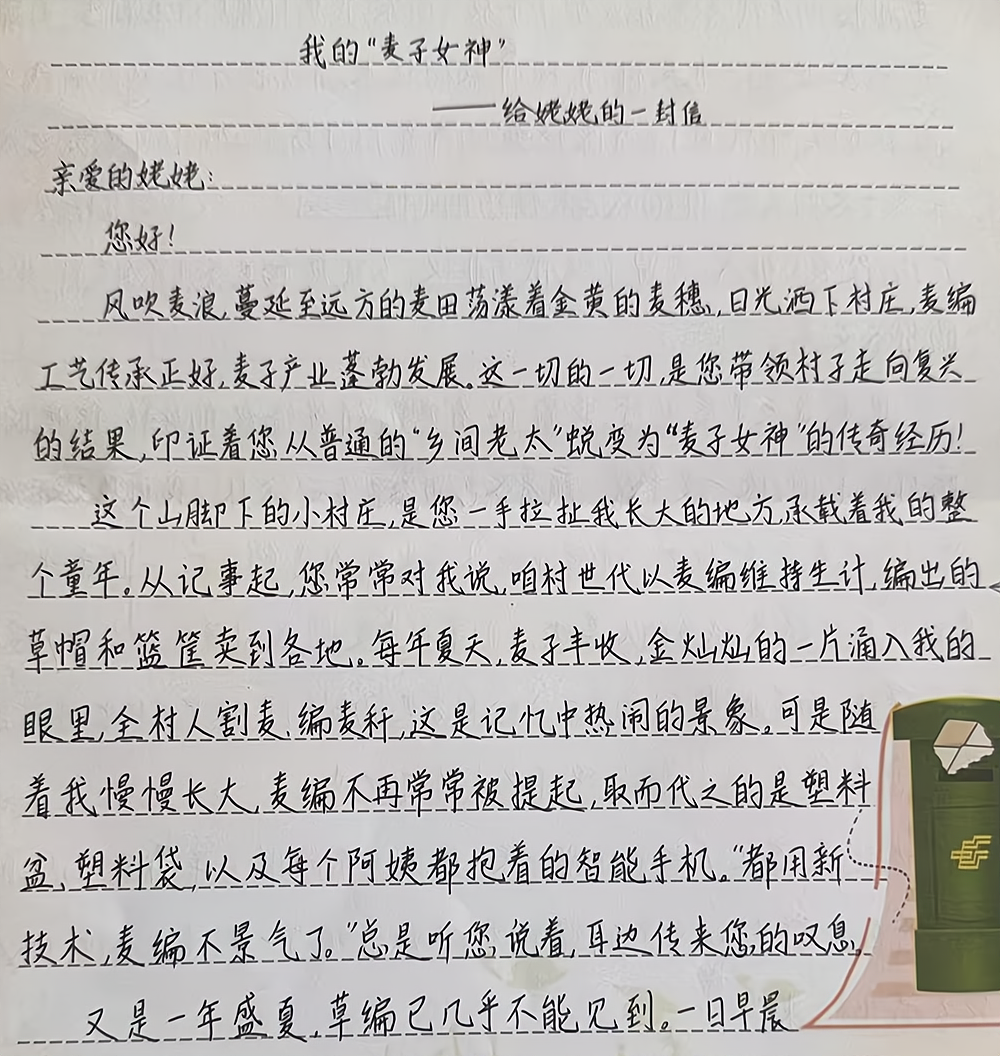 我的“麦子女神”
——给姥姥的一封信
亲爱的姥姥：
您好！
风吹麦浪，蔓延至远方的麦田荡漾着金黄的麦穗，日光洒下村庄，麦编
工艺传承正好，麦子产业蓬勃发展。这一切的一切，是您带领村子走向复兴
的结果，印证着您从普通的“乡间老太”蜕变为“麦子女神”的传奇经历！
这个山脚下的小村庄，是您一手拉扯我长大的地方，承载着我的整
个童年。从记事起，您常常对我说，咱村世代以麦编维持生计，编出的
草帽和篮筐卖到各地。每年夏天，麦子丰收，金灿灿的一片涌入我的
眼里，全村人割麦、编麦秆，这是记忆中热闹的景象。可是随
着我慢慢长大，麦编不再常常被提起，取而代之的是塑料
盆、塑料袋，以及每个阿姨都抱着的智能手机。“都用新
技术，麦编不景气了。”总是听您说着，耳边传来您的叹息。
又是一年盛夏，草编已几乎不能见到。一日早晨